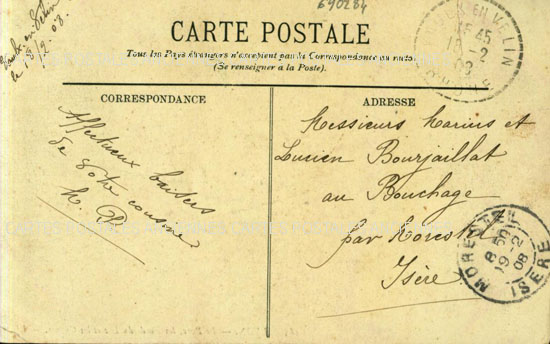 690284
Vaulx-en-Velin
le 18/2.08.
CARTE POSTALE
Tous les Pays étrangers n'acceptent pas la Correspondance au recto.
(Se renseigner à la Poste).
EN VELIN
45
-2
08
CORRESPONDANCE
Affectueux baisers
de votre cousine
ADRESSE
Messieurs Marius et
Lucien Bourjaillat
au Bouchage
par Morestel
Isère
MORESTEL
8 50
19-2
08
ISERE